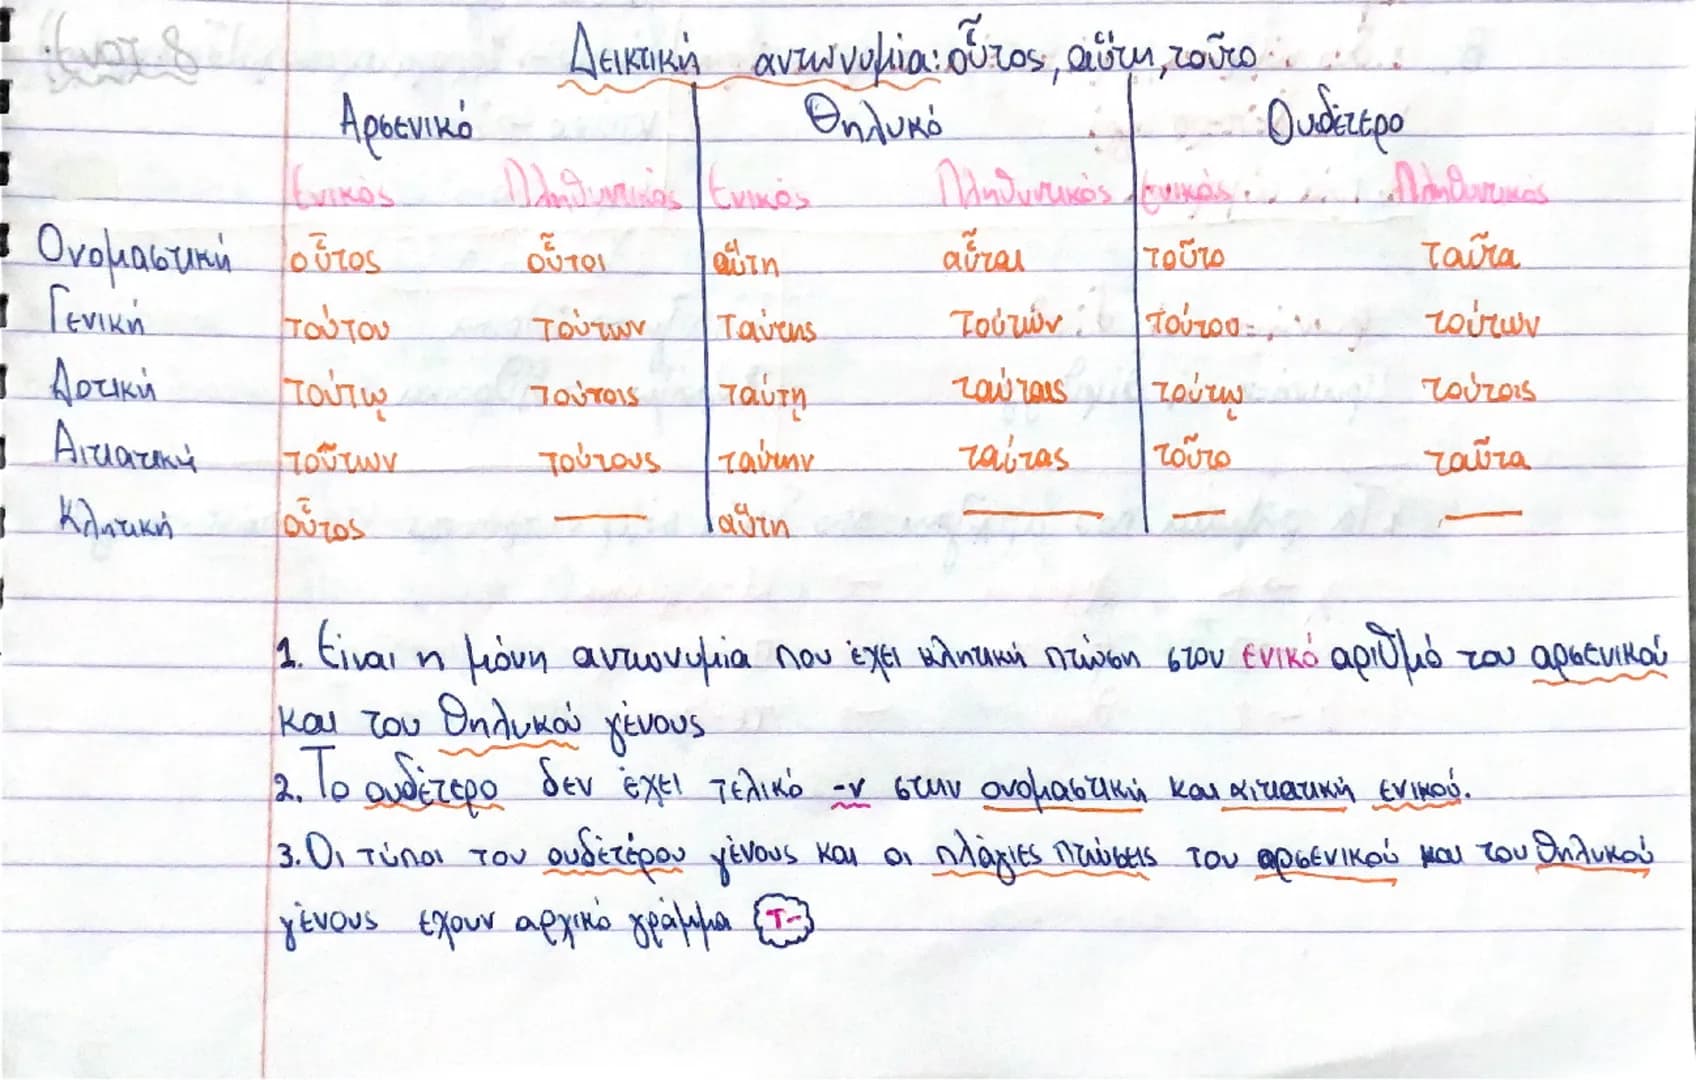 Δεικτική αντωνυμία: οὗτος, αὕτη, τοῦτο
Αρσενικό Θηλυκό Ουδέτερο
Ενικός Πληθυντικός Ενικός Πληθυντικός Ενικός Πληθυντικός
Ονομαστική οὗτος οὗτοι αὕτη αὗται τοῦτο ταῦτα
Γενική τούτου τούτων ταύτης τούτων τούτου τούτων
Δοτική τούτῳ τούτοις ταύτῃ ταύταις τούτῳ τούτοις
Αιτιατική τοῦτων τούτους ταύτην ταύτας τοῦτο ταῦτα
Κλητική οὗτος — αὕτη — — —
1. Είναι η μόνη αντωνυμία που έχει κλητική πτώση στον ενικό αριθμό του αρσενικού
και του θηλυκού γένους
2. Το ουδέτερο δεν έχει τελικό -ν στην ονομαστική και αιτιατική ενικού.
3. Οι τύποι του ουδέτέρου γένους και οι πλάγιες πτώσεις του αρσενικού και του θηλυκού
γένους έχουν αρχικό γράμμα τ-